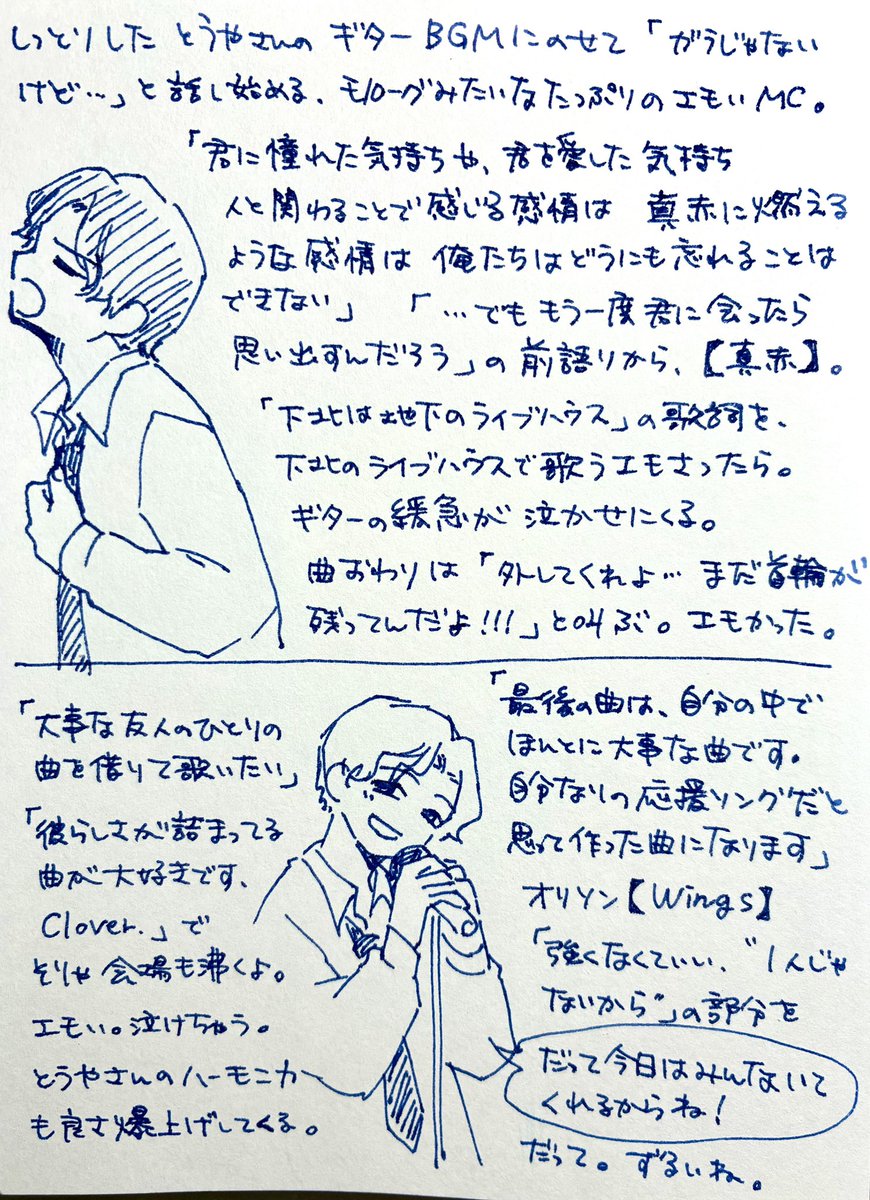 しっとりした とうやさんの ギターBGMにのせて「がらじゃない
けど…」と話し始める、モノローグみたいなたっぷりのエモいMC。
「君に憧れた気持ちや、君を愛した気持ち
人と関わることで感じる感情は 真赤に燃える
ような感情は 俺たちはどうにも忘れることは
できない」「…でももう一度君に会ったら
思い出すんだろう」の前語りから、【真赤】。
「下北は地下のライブハウス」の歌詞を、
下北のライブハウスで歌うエモさったら。
ギターの緩急が泣かせにくる。
曲おわりは「外してくれよ… まだ首輪が
残ってんだよ!!!」と叫ぶ。エモかった。
「大事な友人のひとりの
曲を借りて歌いたい」
「彼らしさが詰まってる
曲が大好きです、
Clover.」で
そりゃ会場も沸くよ。
エモい。泣けちゃう。
とうやさんのハーモニカ
も良さ爆上げしてくる。
「最後の曲は、自分の中で
ほんとに大事な曲です。
自分なりの応援ソングだと
思って作った曲になります」
オリソン【Wings】
「強くなくていい、"1人じゃ
ないから"」の部分を
だって今日はみんないて
くれるからね!
だって。ずるいね。